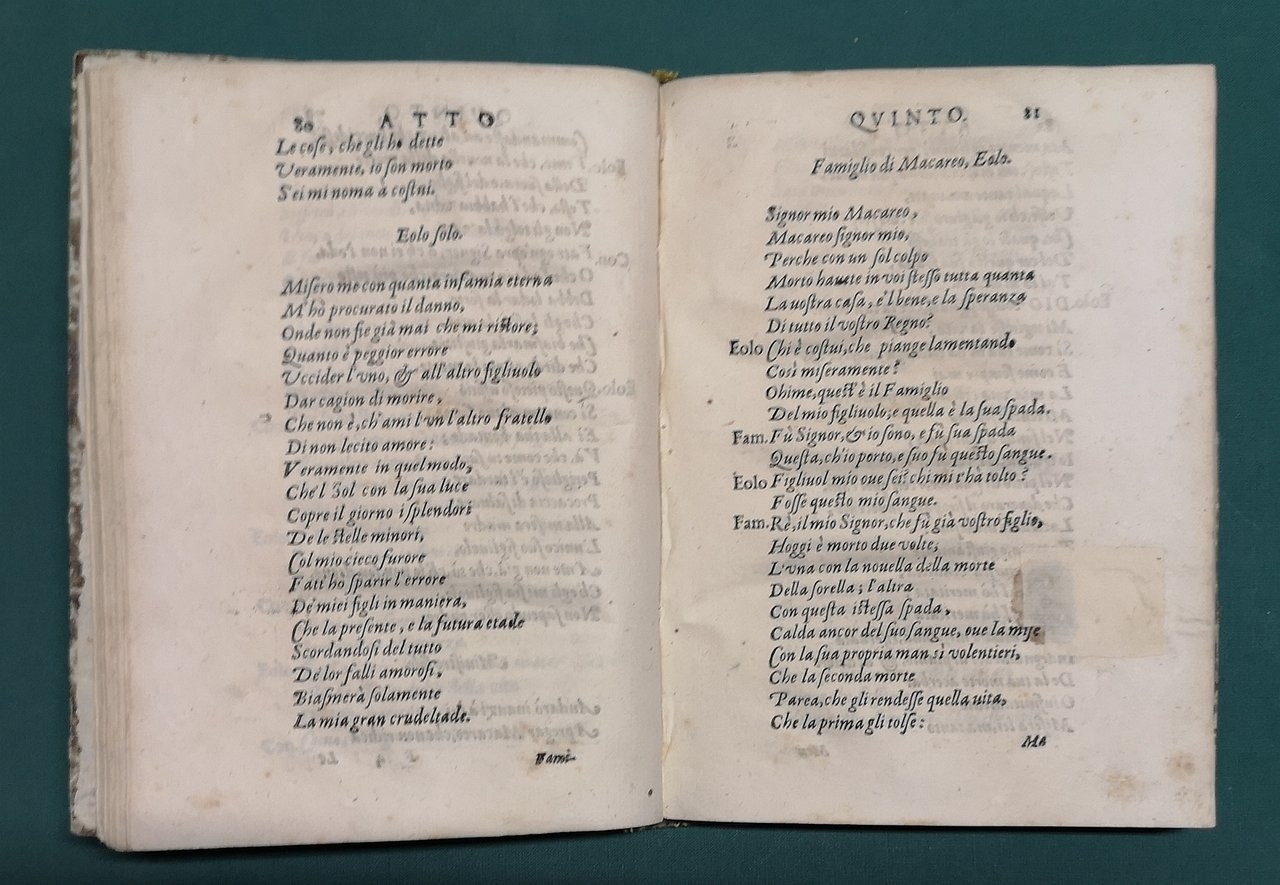 80 ATTO
Le cose, che gli ho dette
Veramente, io son morto
S'ei mi noma à costui.
Eolo solo.
Misero me con quanta infamia eterna
M'hò procurato il danno,
Onde non fie già mai che mi ristore;
Quanto è peggior errore
Uccider l'vno, & all'altro figliuolo
Dar cagion di morire,
Che non è, ch'ami l'vn l'altro fratello
Di non lecito amore:
Veramente in quel modo,
Che'l Sol con la sua luce
Copre il giorno i splendori
De le stelle minori,
Col mio cieco furore
Fatt'hò sparir l'errore
De' miei figli in maniera,
Che la presente, e la futura etade
Scordandosi del tutto
De' lor falli amorosi,
Biasmerà solamente
La mia gran crudeltade.
Fami-
QVINTO. 81
Famiglio di Macareo, Eolo.
Signor mio Macareo,
Macareo signor mio,
Perche con un sol colpo
Morto hauete in voi stesso tutta quanta
La uostra casa, e'l bene, e la speranza
Di tutto il vostro Regno?
Eolo Chi è costui, che piange lamentando
Così miseramente?
Ohime, quest'è il Famiglio
Del mio figliuolo, e quella è la sua spada.
Fam. Fù Signor, & io sono, e fù sua spada
Questa, ch'io porto, e suo fù questo sangue.
Eolo Figliuol mio oue sei? chi mi t'hà tolto?
Fosse questo mio sangue.
Fam. Rè, il mio Signor, che fù già vostro figlio,
Hoggi è morto due volte;
L'vna con la nouella della morte
Della sorella; l'altra
Con questa istessa spada,
Calda ancor del suo sangue, oue la mise
Con la sua propria man sì volentieri,
Che la seconda morte
Parea, che gli rendesse quella uita,
Che la prima gli tolse:
Ma